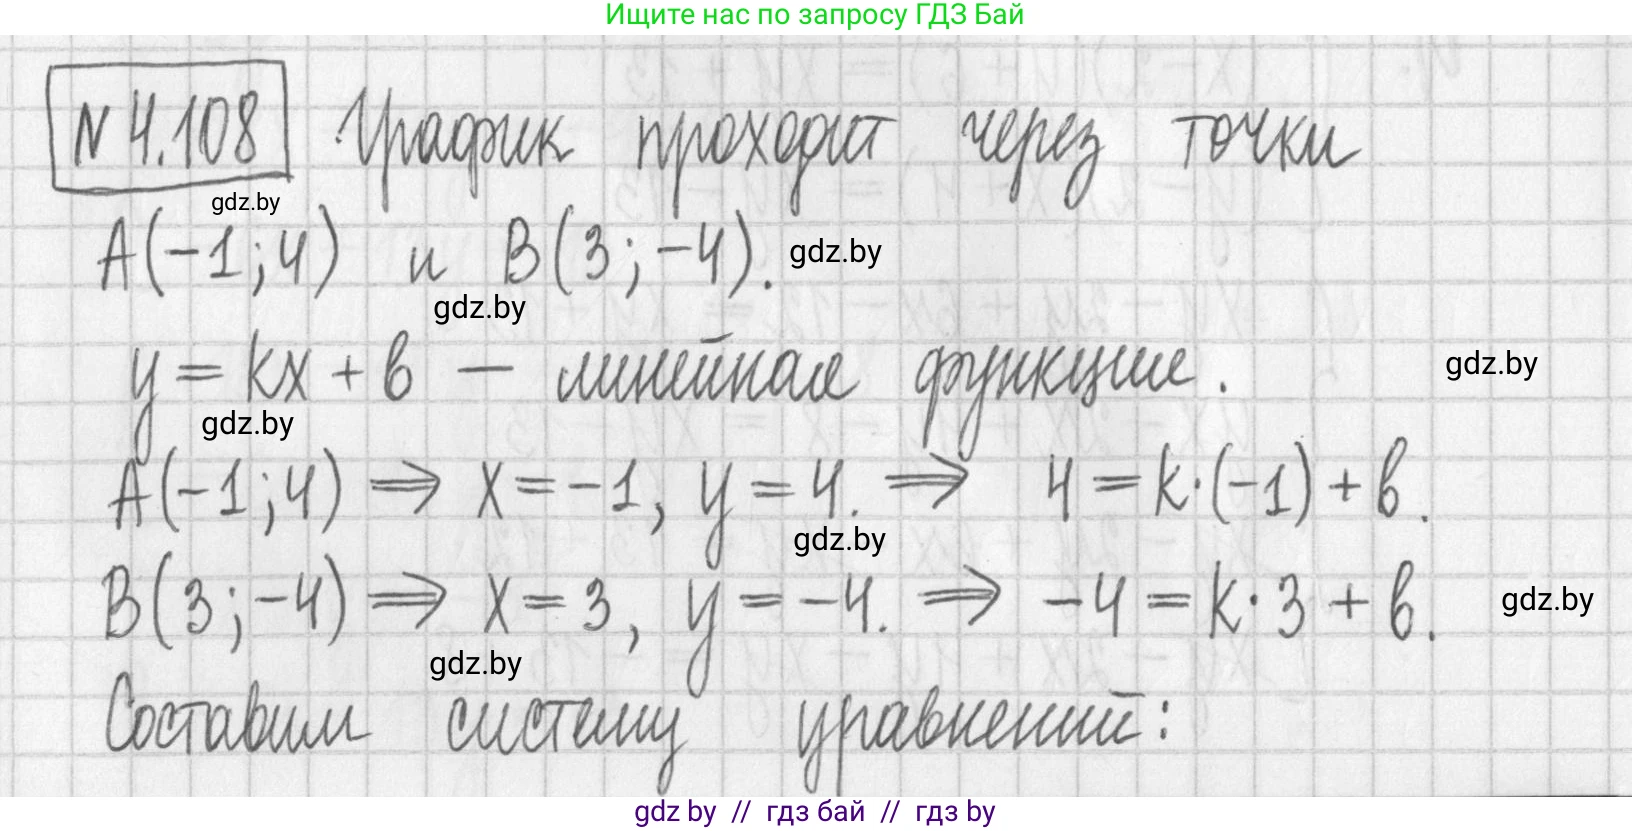 Ищите нас по запросу ГДЗ Бай
N 4.108 График проходит через точки
gdz.by
A(-1;4) и B(3;-4). gdz.by
gdz.by
y = kx + b — линейная функция. gdz.by
gdz.by
A(-1;4) ⇒ x=-1, y=4. ⇒ 4=k·(-1)+b.
gdz.by
B(3;-4) ⇒ x=3, y=-4. ⇒ -4=k·3+b. gdz.by
gdz.by
Составим систему уравнений:
gdz.by // гдз бай // гдз by